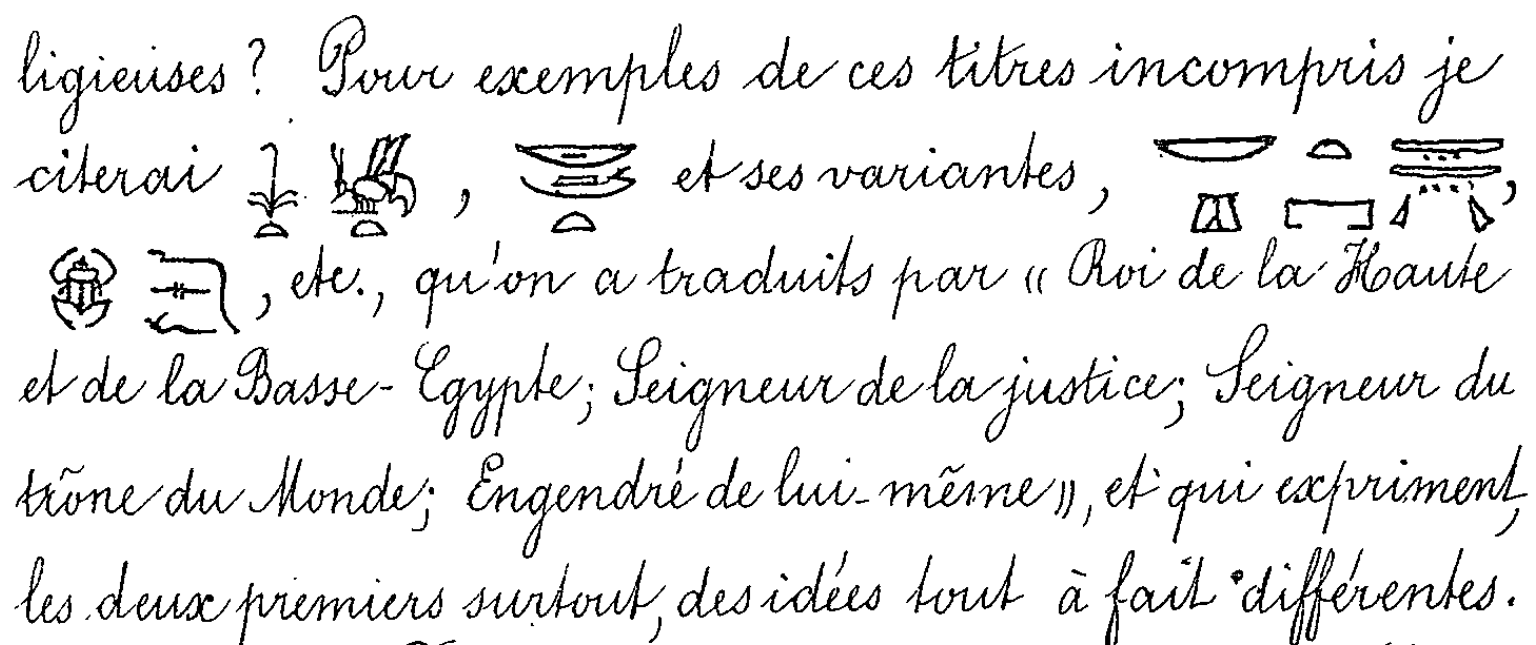 ligieuses ? Pour exemples de ces titres incompris je
citerai 𓇓𓏏𓆤𓏏, et ses variantes, ,
𓆣𓆓𓊃𓆑, etc., qu'on a traduits par « Roi de la Haute
et de la Basse-Egypte; Seigneur de la justice; Seigneur du
trône du Monde; Engendré de lui-même », et qui expriment,
les deux premiers surtout, des idées tout à fait différentes.